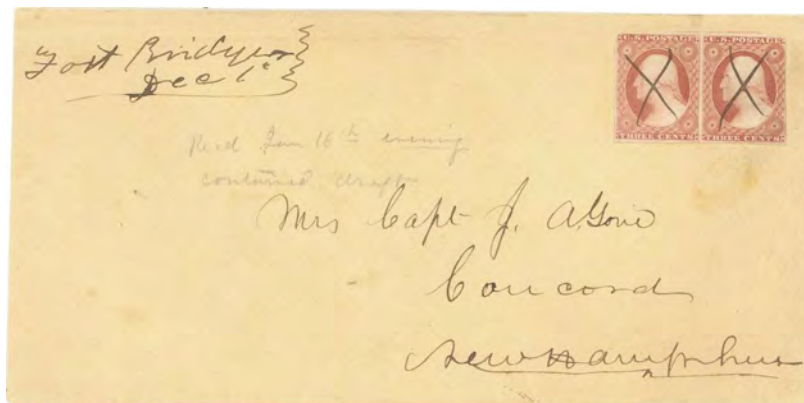 Fort Bridger
Dec 1st
U.S. POSTAGE
THREE CENTS
U.S. POSTAGE
THREE CENTS
Recd Jan 16th evening
contained draft
Mrs Capt. J. A. Gove
Concord
New Hampshire